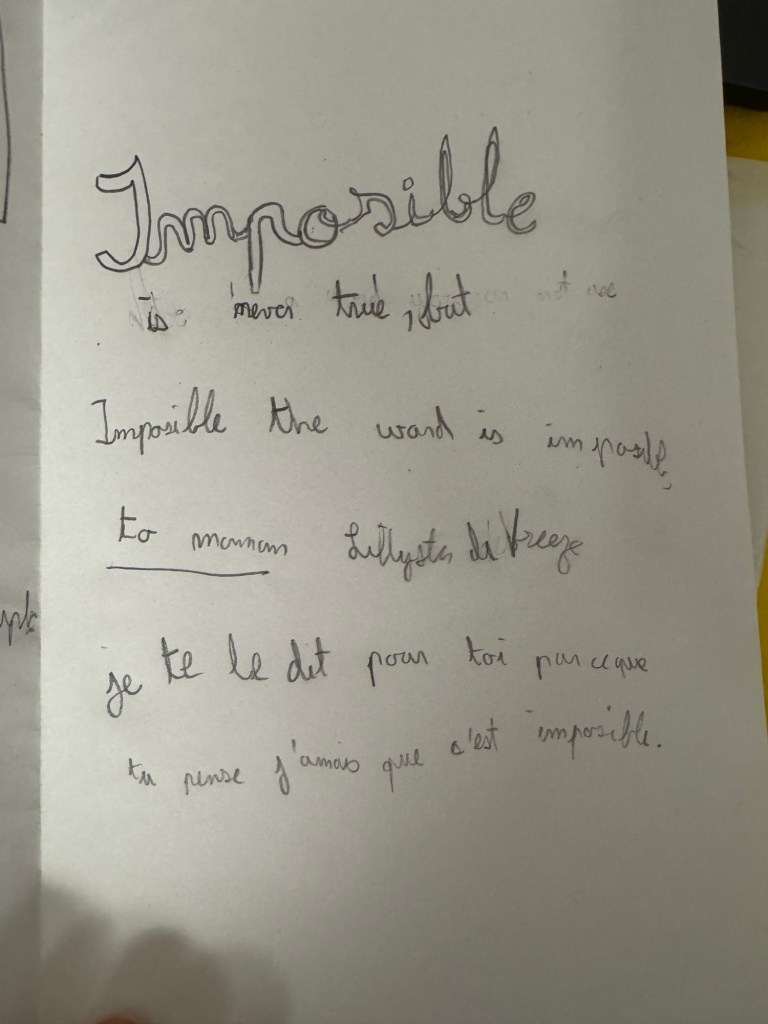 Imposible
is never true, but
Imposible the word is imposible
to maman
je te le dit pour toi parceque
tu pense j'amais que c'est imposible.